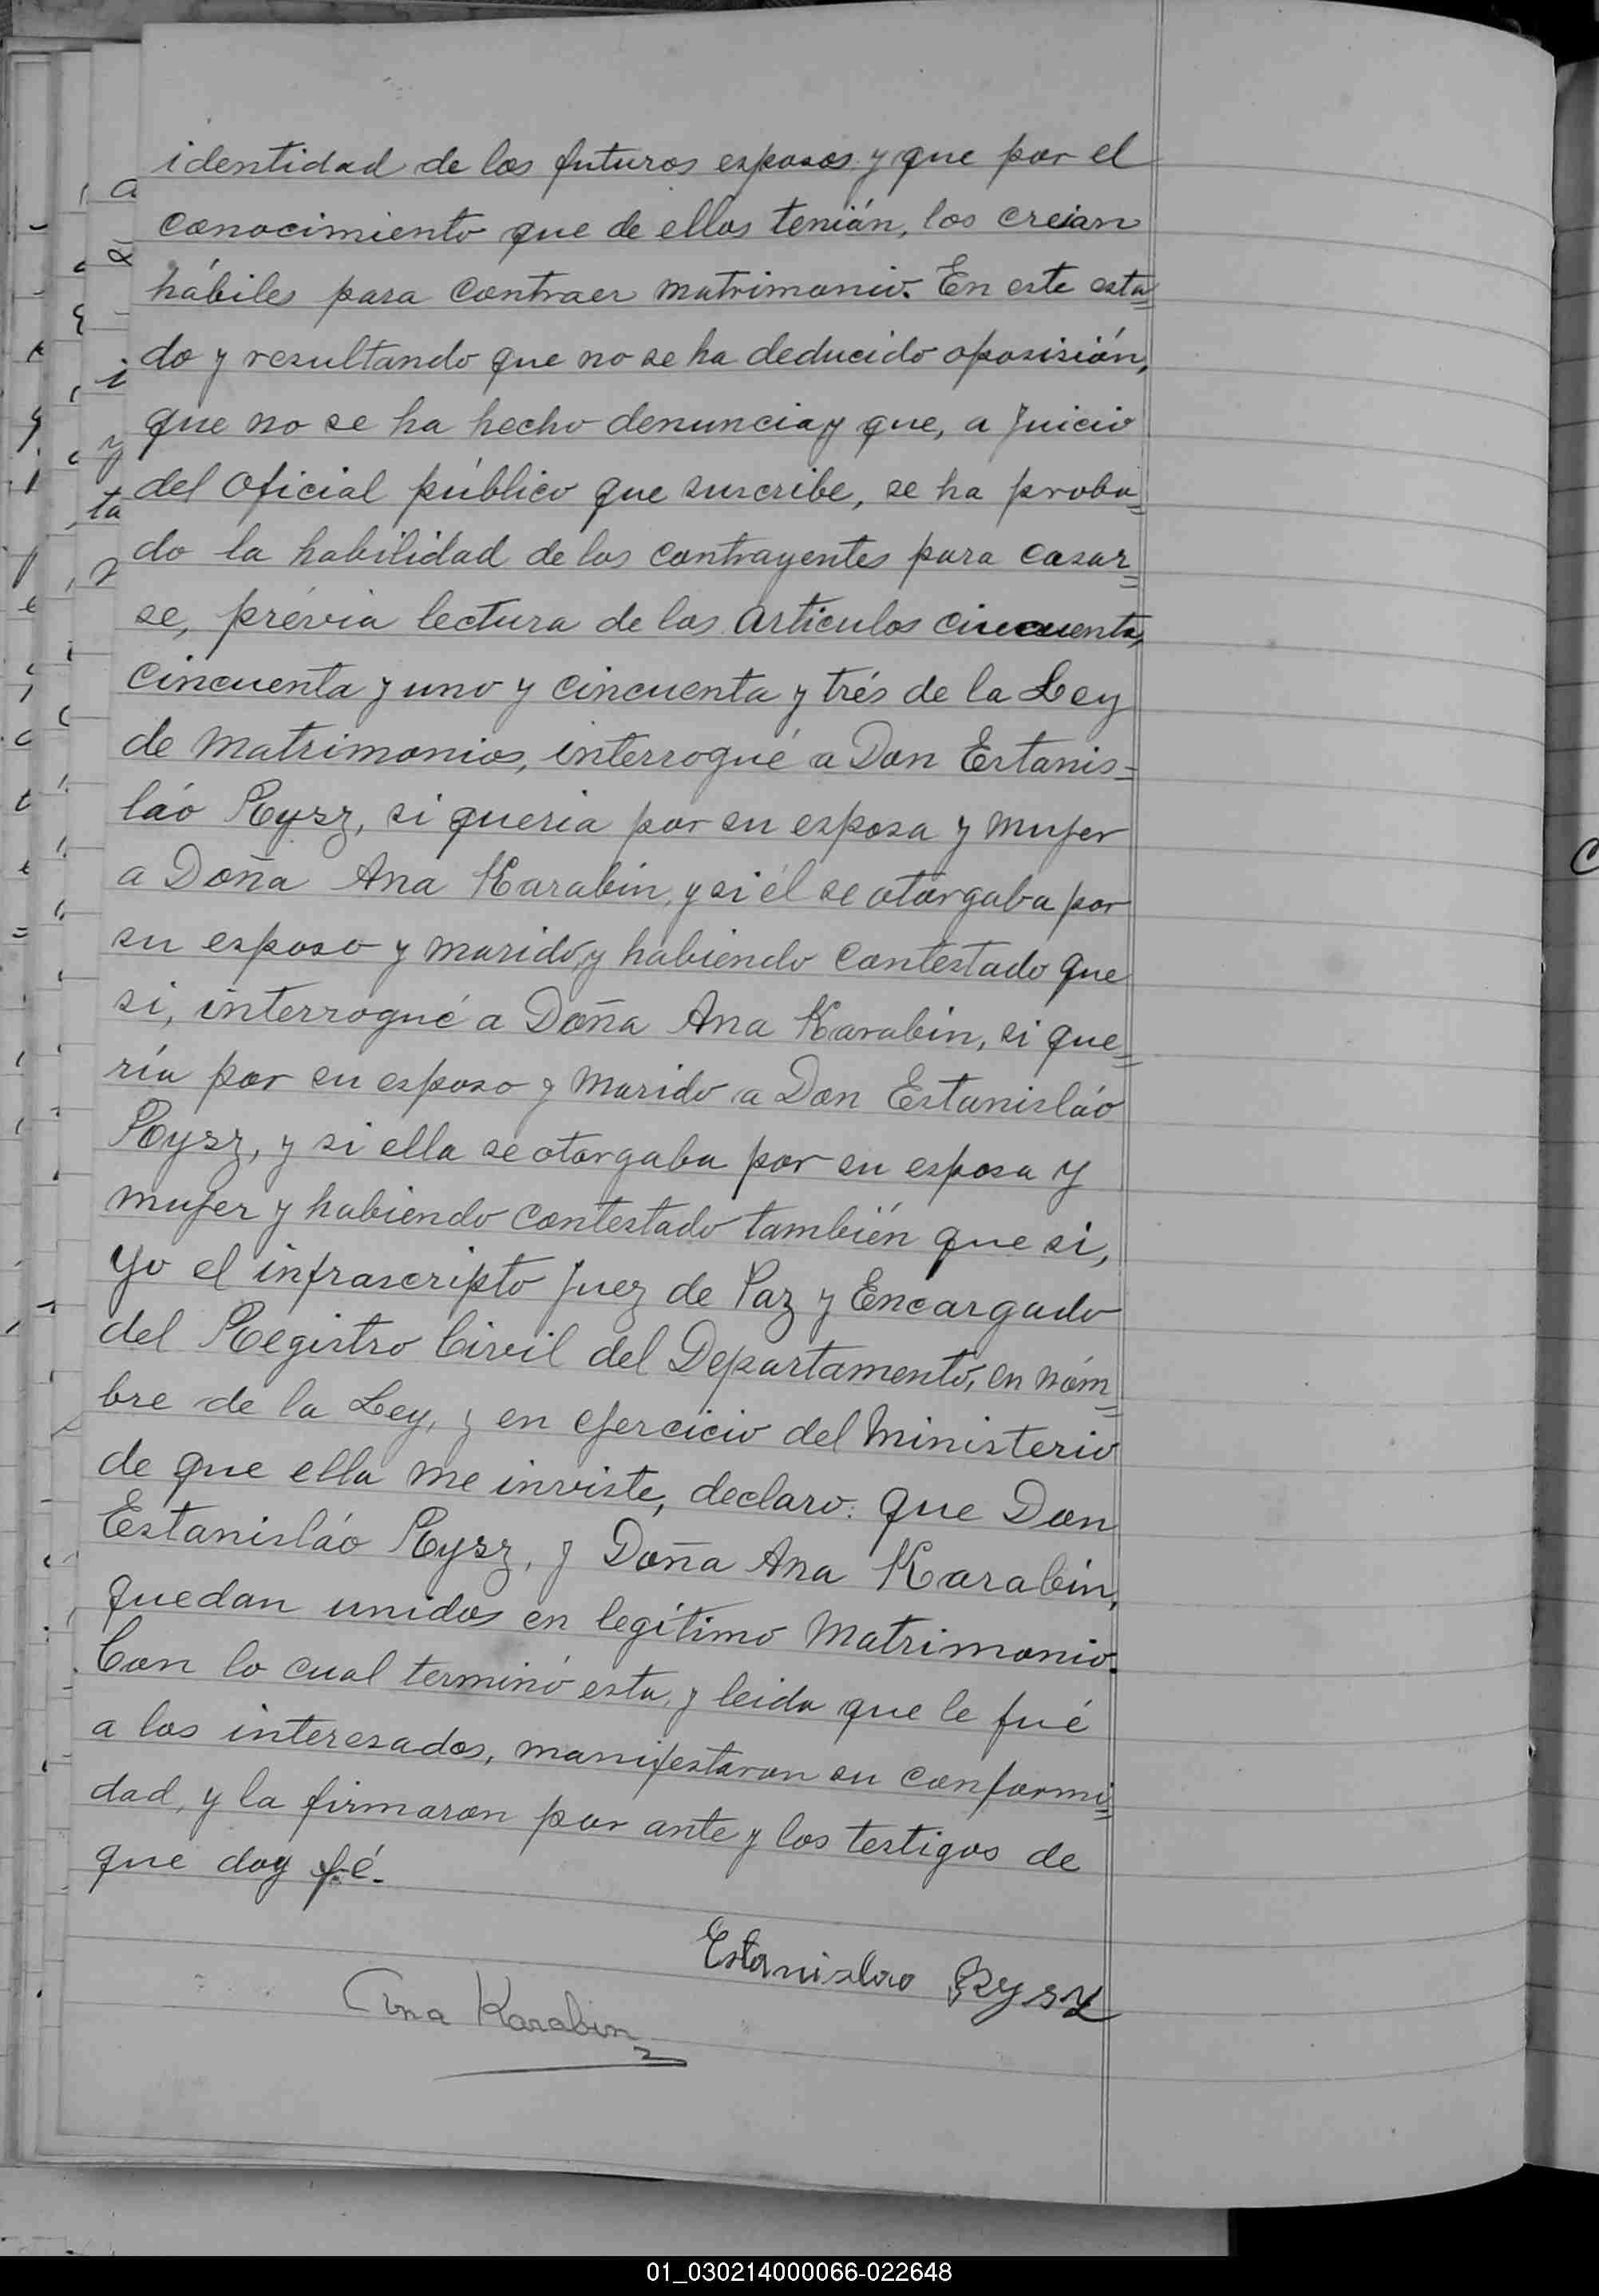 identidad de los futuros esposos y que por el
conocimiento que de ellos tenián, los creian
hábiles para contraer matrimonio. En este esta=
do y resultando que no se ha deducido oposisión,
que no se ha hecho denuncia y que, a juicio
del oficial público que suscribe, se ha proba=
do la habilidad de los contrayentes para casar=
se, prévia lectura de los articulos cincuenta,
cincuenta y uno y cincuenta y trés de la Ley
de Matrimonios, interrogué a Don Estanis=
láo Rysz, si queria por su esposa y mujer
a Doña Ana Karabin, y si él se otorgaba por
su esposo y marido, y habiendo contestado que
si, interrogué a Doña Ana Karabin, si que=
ría por su esposo y marido a Don Estanisláo
Rysz, y si ella se otorgaba por su esposa y
mujer y habiendo contestado también que si,
Yo el infrascripto Juez de Paz y Encargado
del Registro Civil del Departamento, en nóm=
bre de la Ley, y en ejercicio del Ministerio
de que ella me inviste, declaro: que Don
Estanisláo Rysz, y Doña Ana Karabin,
quedan unidos en legítimo Matrimonio.
Con lo cual terminó esta, y leida que le fué
a los interesados, manifestaron su conformi=
dad, y la firmaron por ante y los testigos de
que doy fé.
Estanislao Rysz
Ana Karabin
01_030214000066-022648